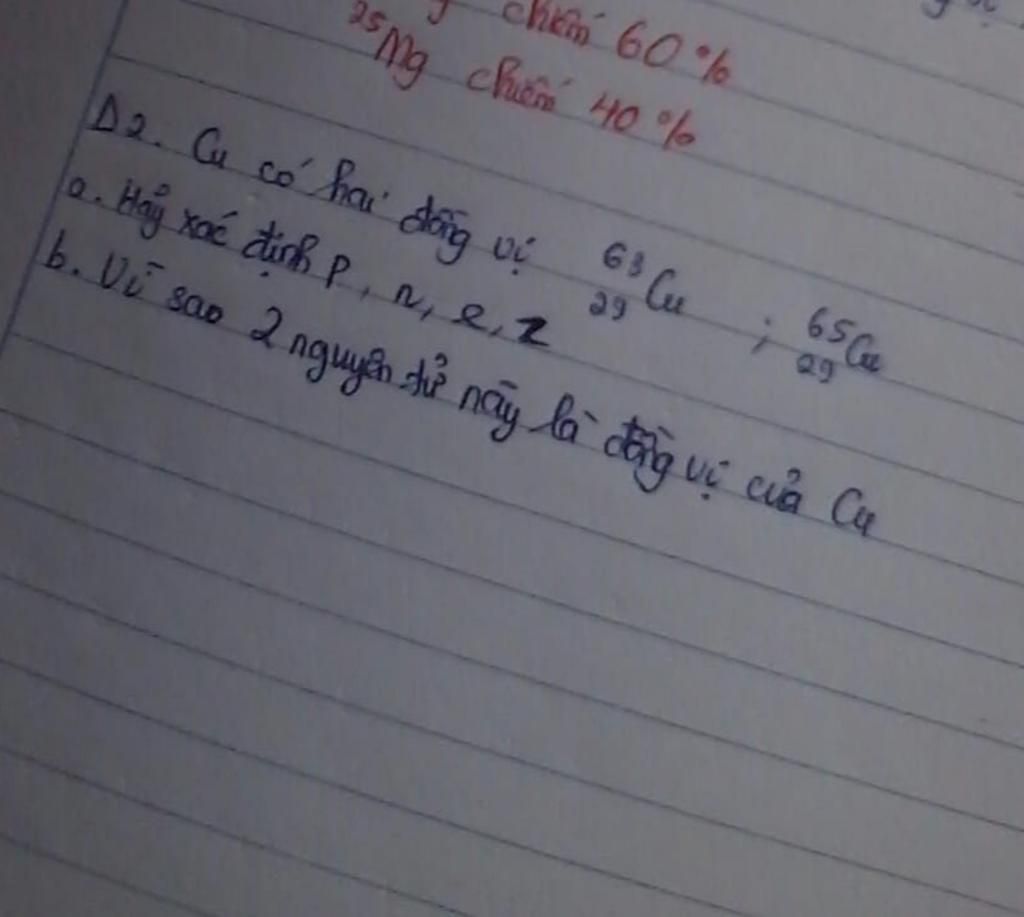 chiếm 60%
25Mg chiếm 40%
Δ2. Cu có hai đồng vị 63 29 Cu ; 65 29 Cu
a. Hãy xác định p, n, e, z
b. Vì sao 2 nguyên tử này là đồng vị của Cu